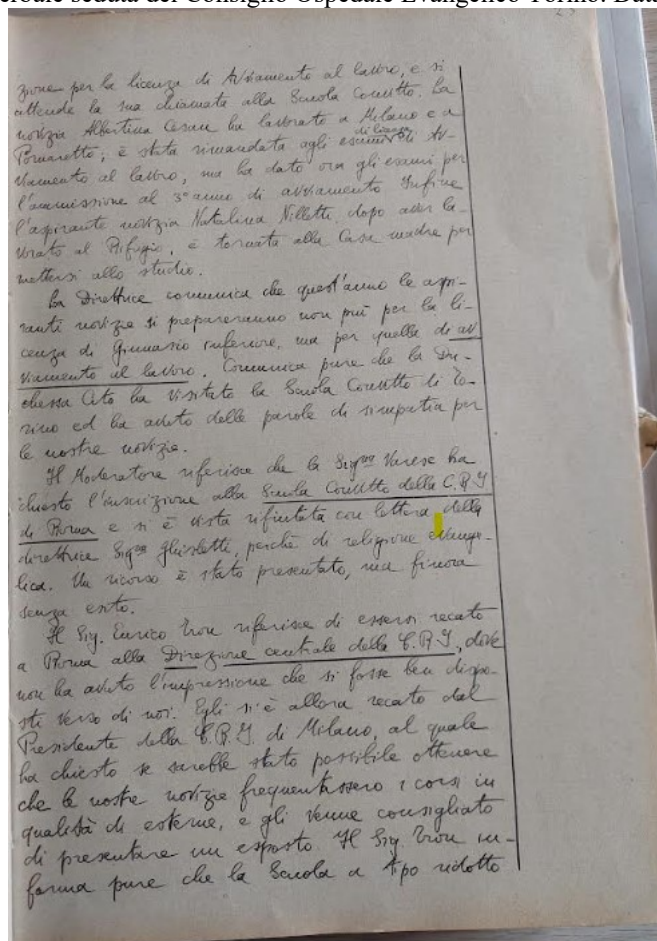 verbale seduta del Consiglio Ospedale Evangelico Torino. Data
zione per la licenza di Avviamento al lavoro, e si
attende la sua chiamata alla Scuola Convitto. La
novizia Albertina Cesan ha lavorato a Milano e a
di licenza
Pomaretto; è stata rimandata agli esami di Av-
viamento al lavoro, ma ha dato ora gli esami per
l'ammissione al 3° anno di avviamento. Infine
l'aspirante novizia Natalina Villetti, dopo aver la-
vorato al Rifugio, è tornata alla Casa madre per
mettersi allo studio.
La Direttrice comunica che quest'anno le aspi-
ranti novizie si prepareranno non più per la li-
cenza di Ginnasio inferiore, ma per quella di av
viamento al lavoro. Comunica pure che la Du-
chessa Cito ha visitato la Scuola Convitto di To-
rino ed ha avuto delle parole di simpatia per
le nostre novizie.
Il Moderatore riferisce che la Sigra Varese ha
chiesto l'iscrizione alla Scuola Convitto della C.R.I
di Roma e si è vista rifiutata con lettera della
direttrice Sigra Ghisletti, perchè di religione evange-
lica. Un ricorso è stato presentato, ma finora
senza esito.
Il Sig. Enrico Tron riferisce di essersi recato
a Roma alla Direzione centrale della C.R.I., dove
non ha avuto l'impressione che si fosse ben dispo-
sti verso di noi. Egli si è allora recato dal
Presidente della C.R.I. di Milano, al quale
ha chiesto se sarebbe stato possibile ottenere
che le nostre novizie frequentassero i corsi in
qualità di esterne, e gli venne consigliato
di presentare un esposto. Il Sig. Tron in-
forma pure che la Scuola a tipo ridotto